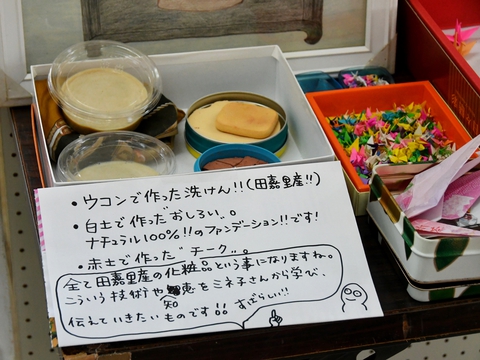 ・ウコンで作った洗けん!!(田嘉里産!!)
・白土で作った"おしろい"。
ナチュラル100%!!のファンデーション!!です!
・赤土で作った"チーク"。
全て田嘉里産の化粧品という事になりますね。
こういう技術や知恵をミネ子さんから学び、
伝えていきたいものです!! すばらしい!!